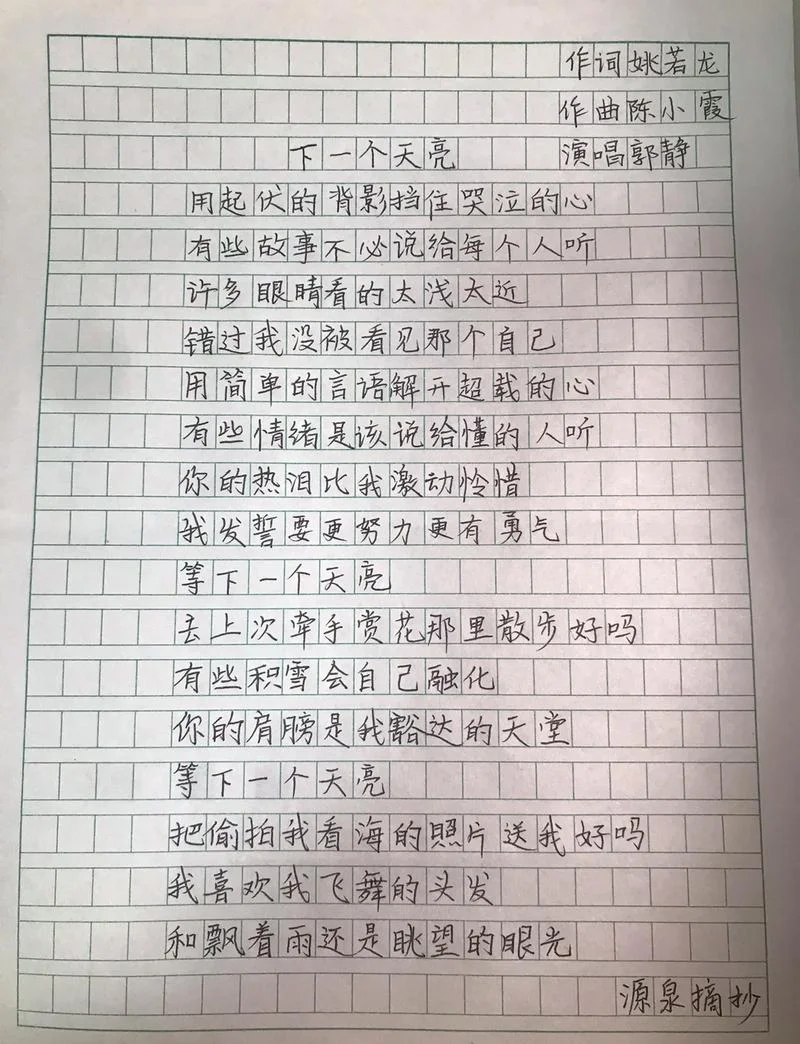 作词姚若龙
作曲陈小霞
下一个天亮 演唱郭静
用起伏的背影挡住哭泣的心
有些故事不必说给每个人听
许多眼睛看的太浅太近
错过我没被看见那个自己
用简单的言语解开超载的心
有些情绪是该说给懂的人听
你的热泪比我激动怜惜
我发誓要更努力更有勇气
等下一个天亮
去上次牵手赏花那里散步好吗
有些积雪会自己融化
你的肩膀是我豁达的天堂
等下一个天亮
把偷拍我看海的照片送我好吗
我喜欢我飞舞的头发
和飘着雨还是眺望的眼光
源泉摘抄